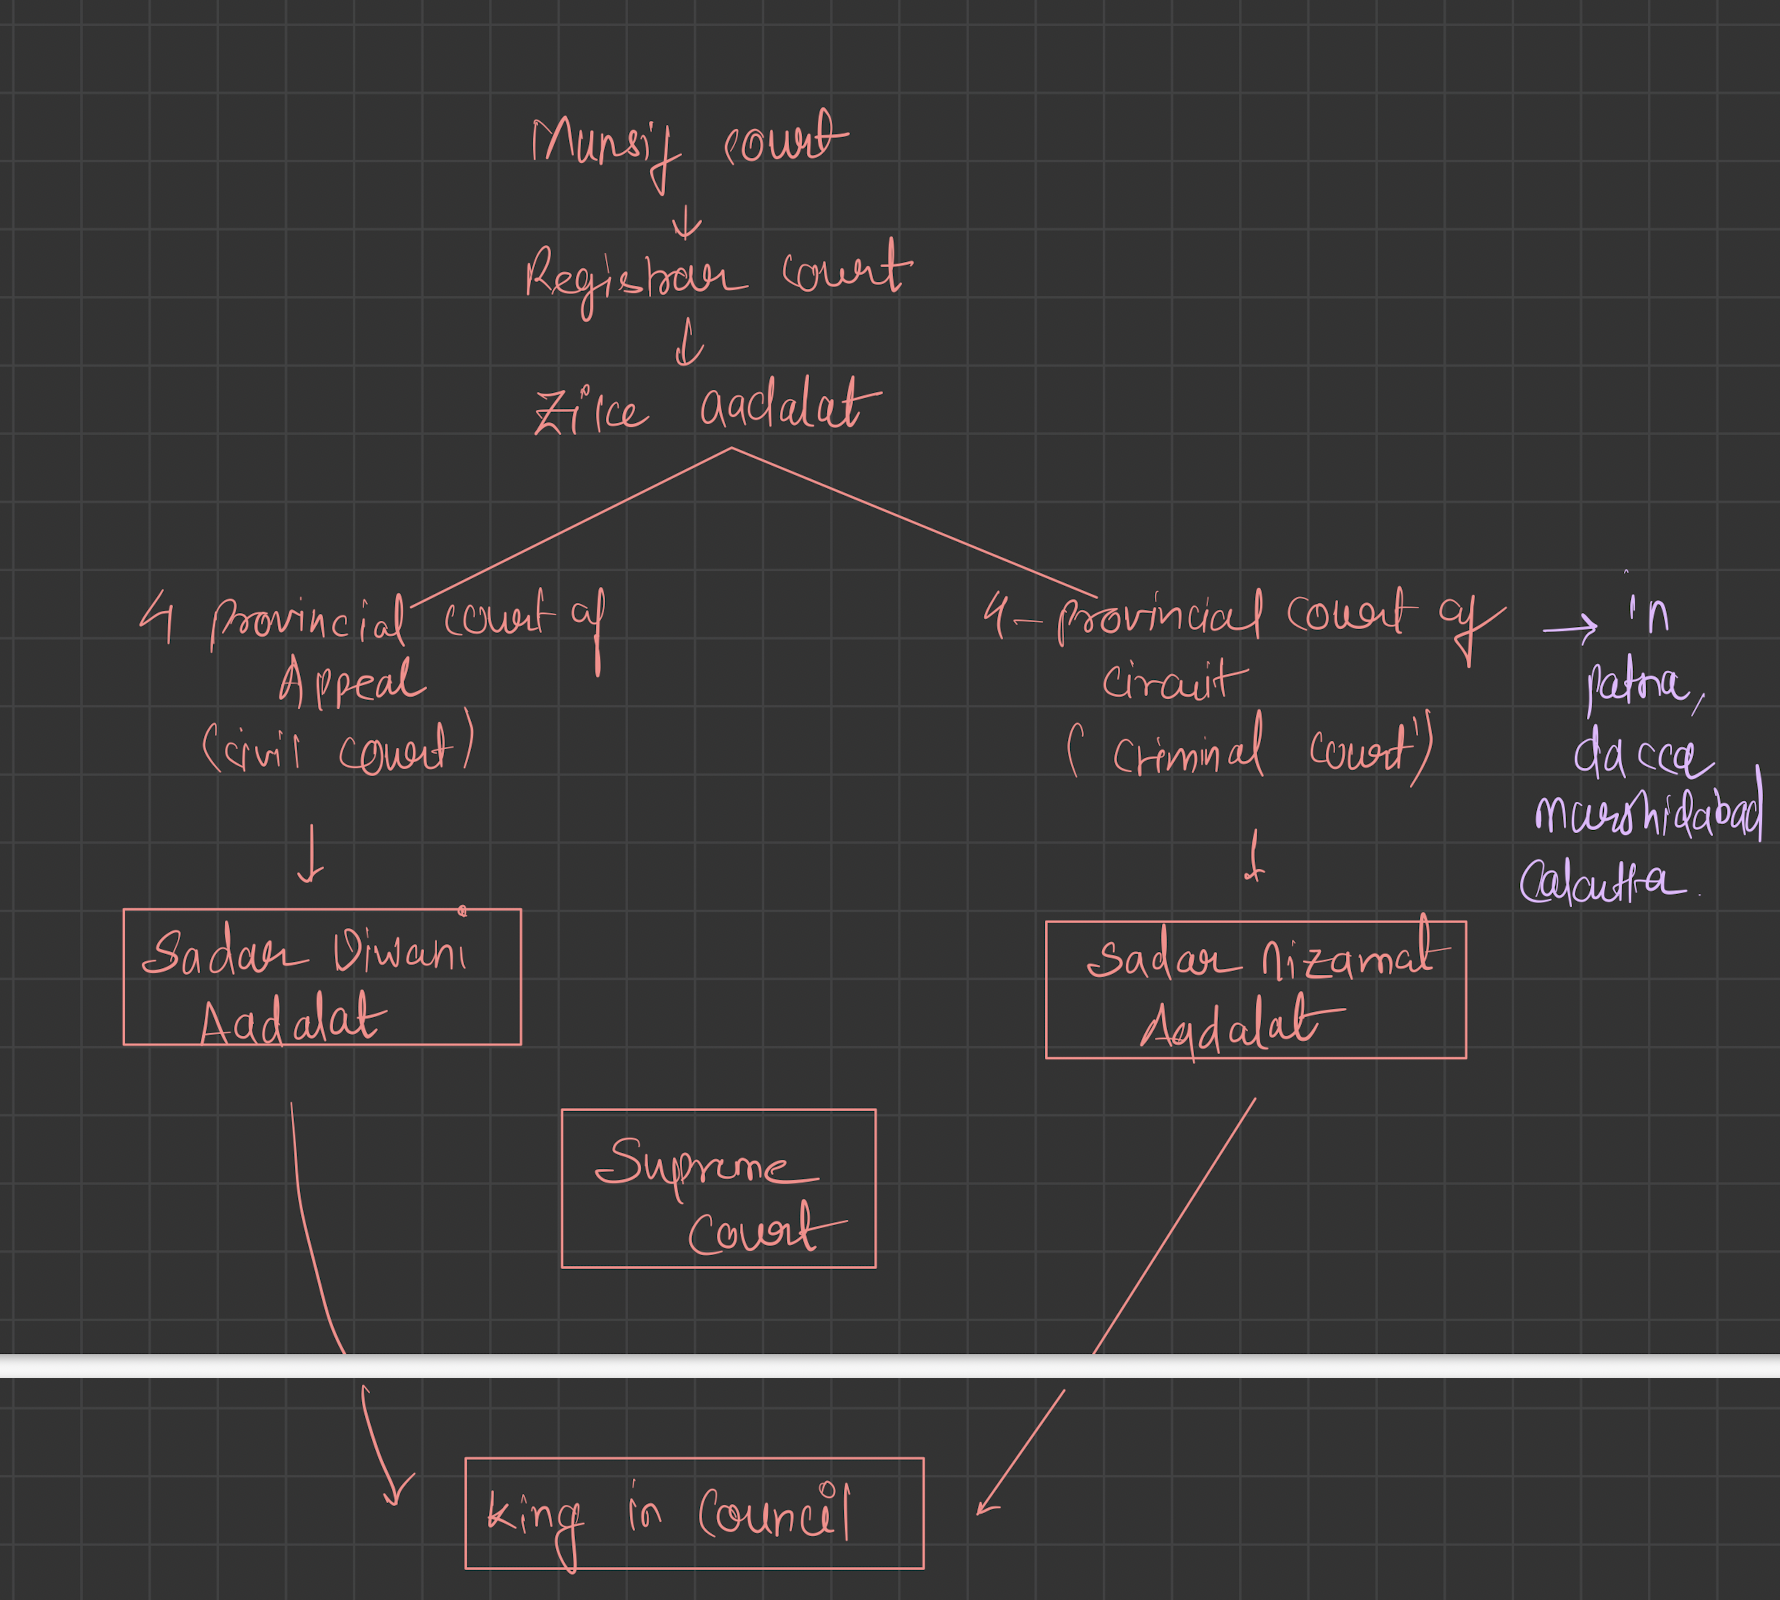 Munsif court
Registrar court
Zilce aadalat
4 provincial court of
Appeal
(civil court)
4-provincial court of
circuit
(criminal court)
in
patna,
dacca
murshidabad
Calcutta.
Sadar Diwani
Aadalat
Sadar Nizamat
Aadalat
Supreme
Court
King in Council